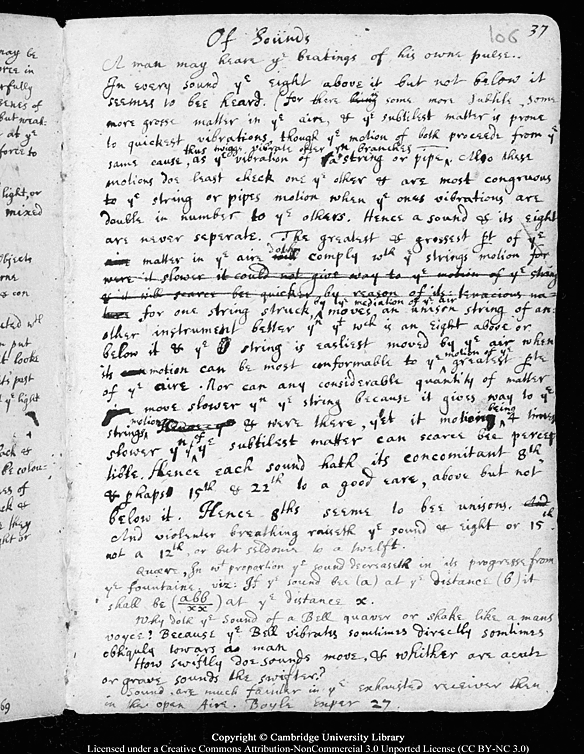 may be
force in
erfully
senses of
but weat:
at yᵉ
force to
light, or
mixed
Objects
& con
ated wᵗʰ
put
looke
past
yᵉ light
& colou=
es of
they
ght or
69
106 37
Of Sounds
A man may heare yᵉ beatings of his owne pulse..
In every sound yᵉ eight above it but not below it
seemes to bee heard. (for there being some more subtile, some
more grosse matter in yᵉ aire, & yᵉ subtilest matter is prone
to quickest vibrations, though yᵉ motion of both proceede from yᵉ
thus twiggs vibrate ofter yⁿ branches
same cause, as yᵉ vibration of a string or pipe. Also these
motions doe least check one yᵉ other & are most congruous
to yᵉ string or pipes motion when yᵉ ones vibrations are
double in number to yᵉ others. Hence a sound & its eight
are never seperate. The greatest & grossest pt of yᵉ
doth
aire matter in yᵉ aire will comply wᵗʰ yᵉ strings motion for
were it slower it could not give way to yᵉ motion of yᵉ string
& it will scarce bee quicker by reason of its tenacious na=
by yᵉ mediation of yᵉ air
ture for one string struck, moves an unison string of an=
other instrument better yⁿ yᵗ wᶜʰ is an Eight above or
below it & yᵉ string is easliest moved by yᵉ air when
motion of yᵉ
its motion can be most conformable to yᵉ greatest pte
of yᵉ aire. Nor can any considerable quantity of matter
move slower yⁿ yᵉ string because it gives way to yᵉ
motion being
strings & were there, yet it motion 4 times
slower yⁿ yᵗ of yᵉ subtilest matter can scarce bee percep
tible. Hence each sound hath its concomitant 8ᵗʰ
& phaps 15ᵗʰ & 22ᵗʰ to a good eare, above but not
below it. Hence 8ths seeme to bee unisons. And
And violenter breathing raiseth yᵉ sound & eight or 15ᵗʰ
not a 12ᵗʰ, or but seldome to a twelft.
Quære, In wᵗ proportion yᵉ sound decreaseth in its progresse from
yᵉ fountaine, viz: If yᵉ sound bee (a) at yᵉ distance (b) it
shall be (abb/xx) at yᵉ distance x.
Why doth yᵉ sound of a Bell quaver or shake like a mans
voyce? Because yᵉ Bell vibrates somtimes directly somtimes
obliquly towars a man
How swiftly doe sounds move, & whither are acute
or grave sounds the swifter?
Sound are much fainter in yᵉ exhausted receiver then
in the open Aire. Boyle Exper 27
Copyright © Cambridge University Library
Licensed under a Creative Commons Attribution-NonCommercial 3.0 Unported License (CC BY-NC 3.0)